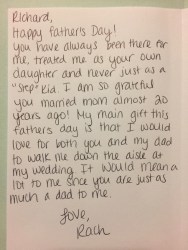 Richard,
Happy father's Day!
you have always been there for
me, treated me as your own
daughter and never just as a
"Step" kid. I am so grateful
you married mom almost 20
years ago! My main gift this
fathers day is that I would
love for both you and my dad
to walk me down the aisle at
my wedding. It would mean a
lot to me since you are just as
much a dad to me.
love,
Rach